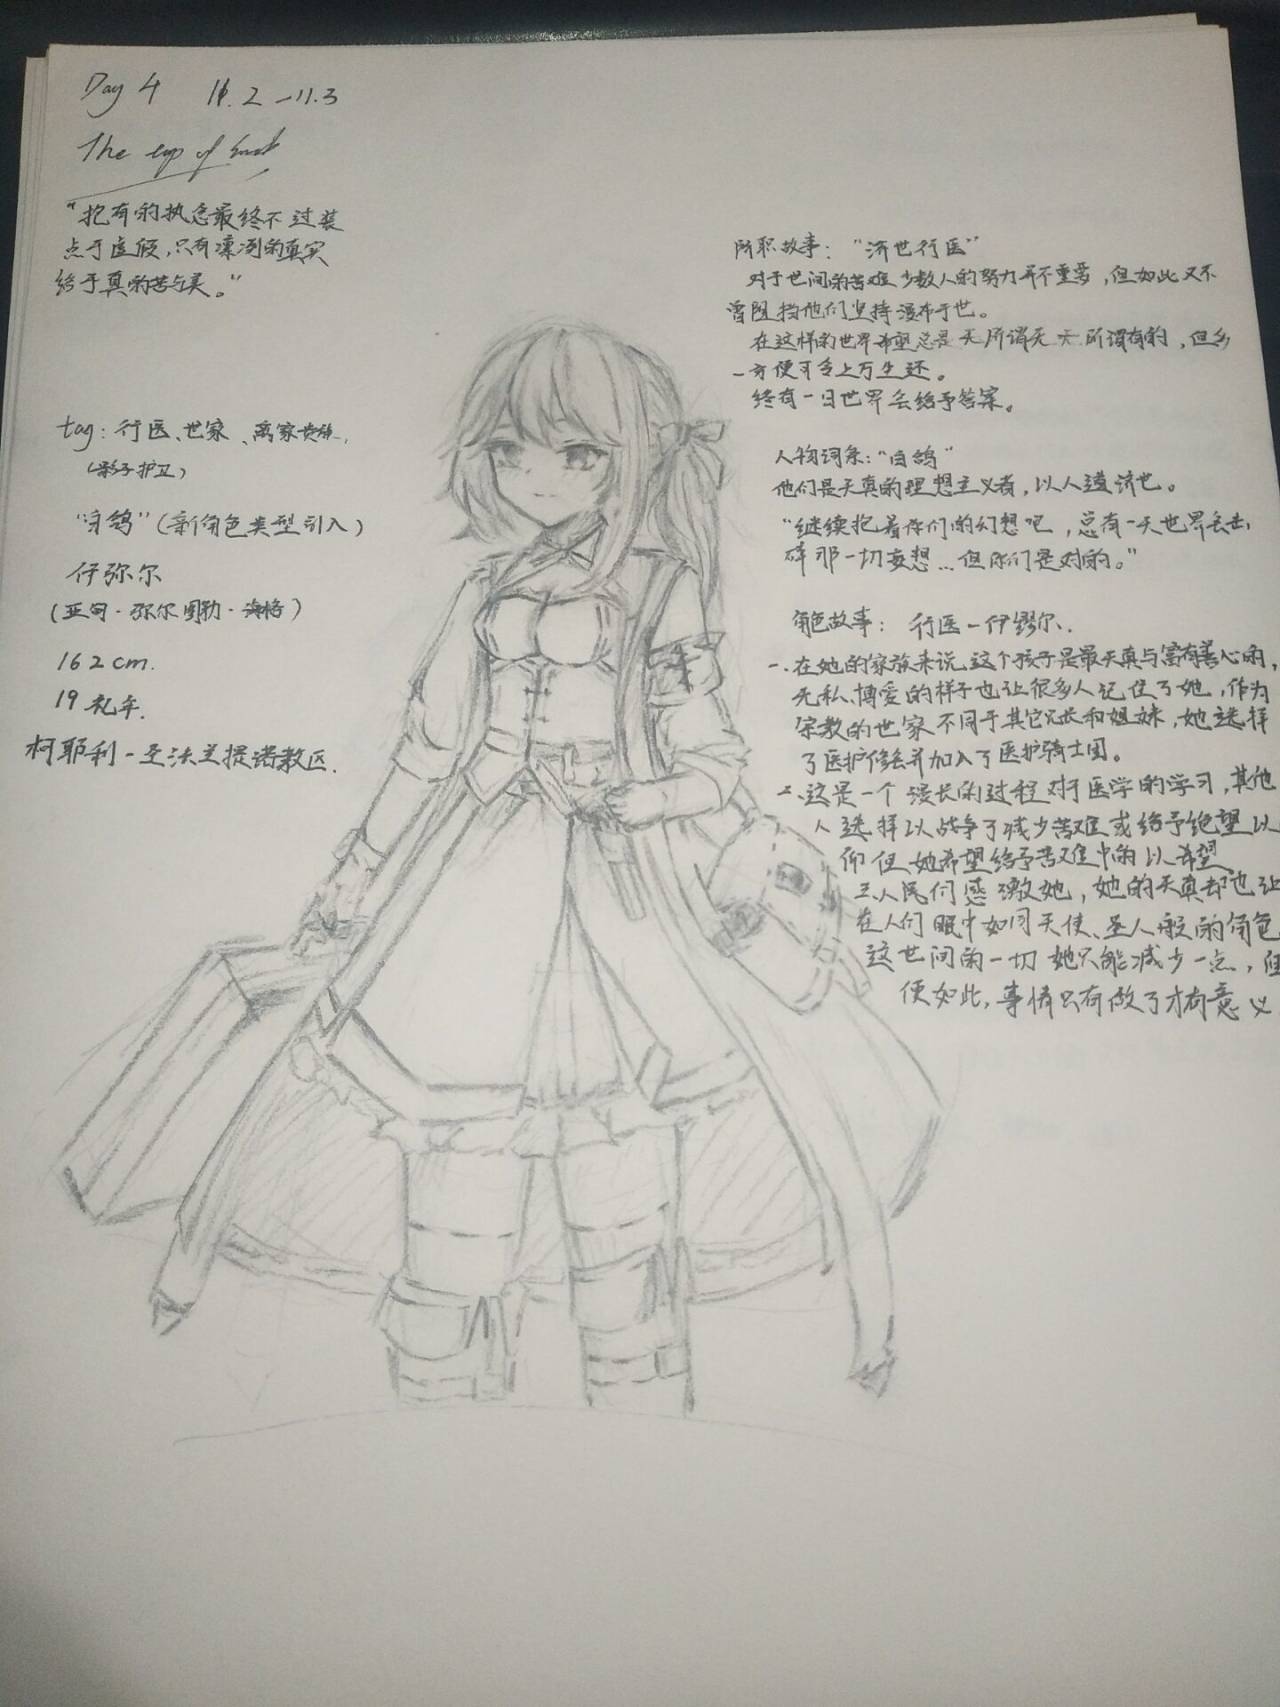 Day 4 11.2-11.3
The of
"抱有的执念最终不过装
点于虚假，只有凛冽的真实
给予真的苦与美。"
tag：行医、世家、离家贵族，
(影子护卫)
"白鸽"(新角色类型引入)
伊弥尔
(亚旬·弥尔图勒·海格)
162cm.
19 礼年.
柯耶利-圣法兰提诺教区.
所职故事："济世行医"
对于世间的苦难 少数人的努力并不重要，但如此又不
曾阻挡他们坚持漫布于世。
在这样的世界希望总是无所谓无 无所谓有的，但多
一方便可令上万生还。
终有一日世界会给予答案。
人物词条："白鸽"
他们是天真的理想主义者，以人道济世。
"继续抱着你们的幻想吧，总有一天世界会击
碎那一切妄想...但你们是对的。"
角色故事： 行医-伊缪尔.
一.在她的家族来说，这个孩子是最天真与富有善心的，
无私、博爱的样子也让很多人记住了她，作为
宗教的世家 不同于其它兄长和姐妹，她选择
了医护修会并加入了医护骑士团。
二、这是一个漫长的过程对于医学的学习，其他
人选择以战争了减少苦难或给予绝望以
仰但她希望给予苦难中的以希望。
三.人民们感激她，她的天真却也让
在人们眼中如同天使、圣人般的角色
这世间的一切她只能减少一点，但
便如此，事情只有做了才有意义